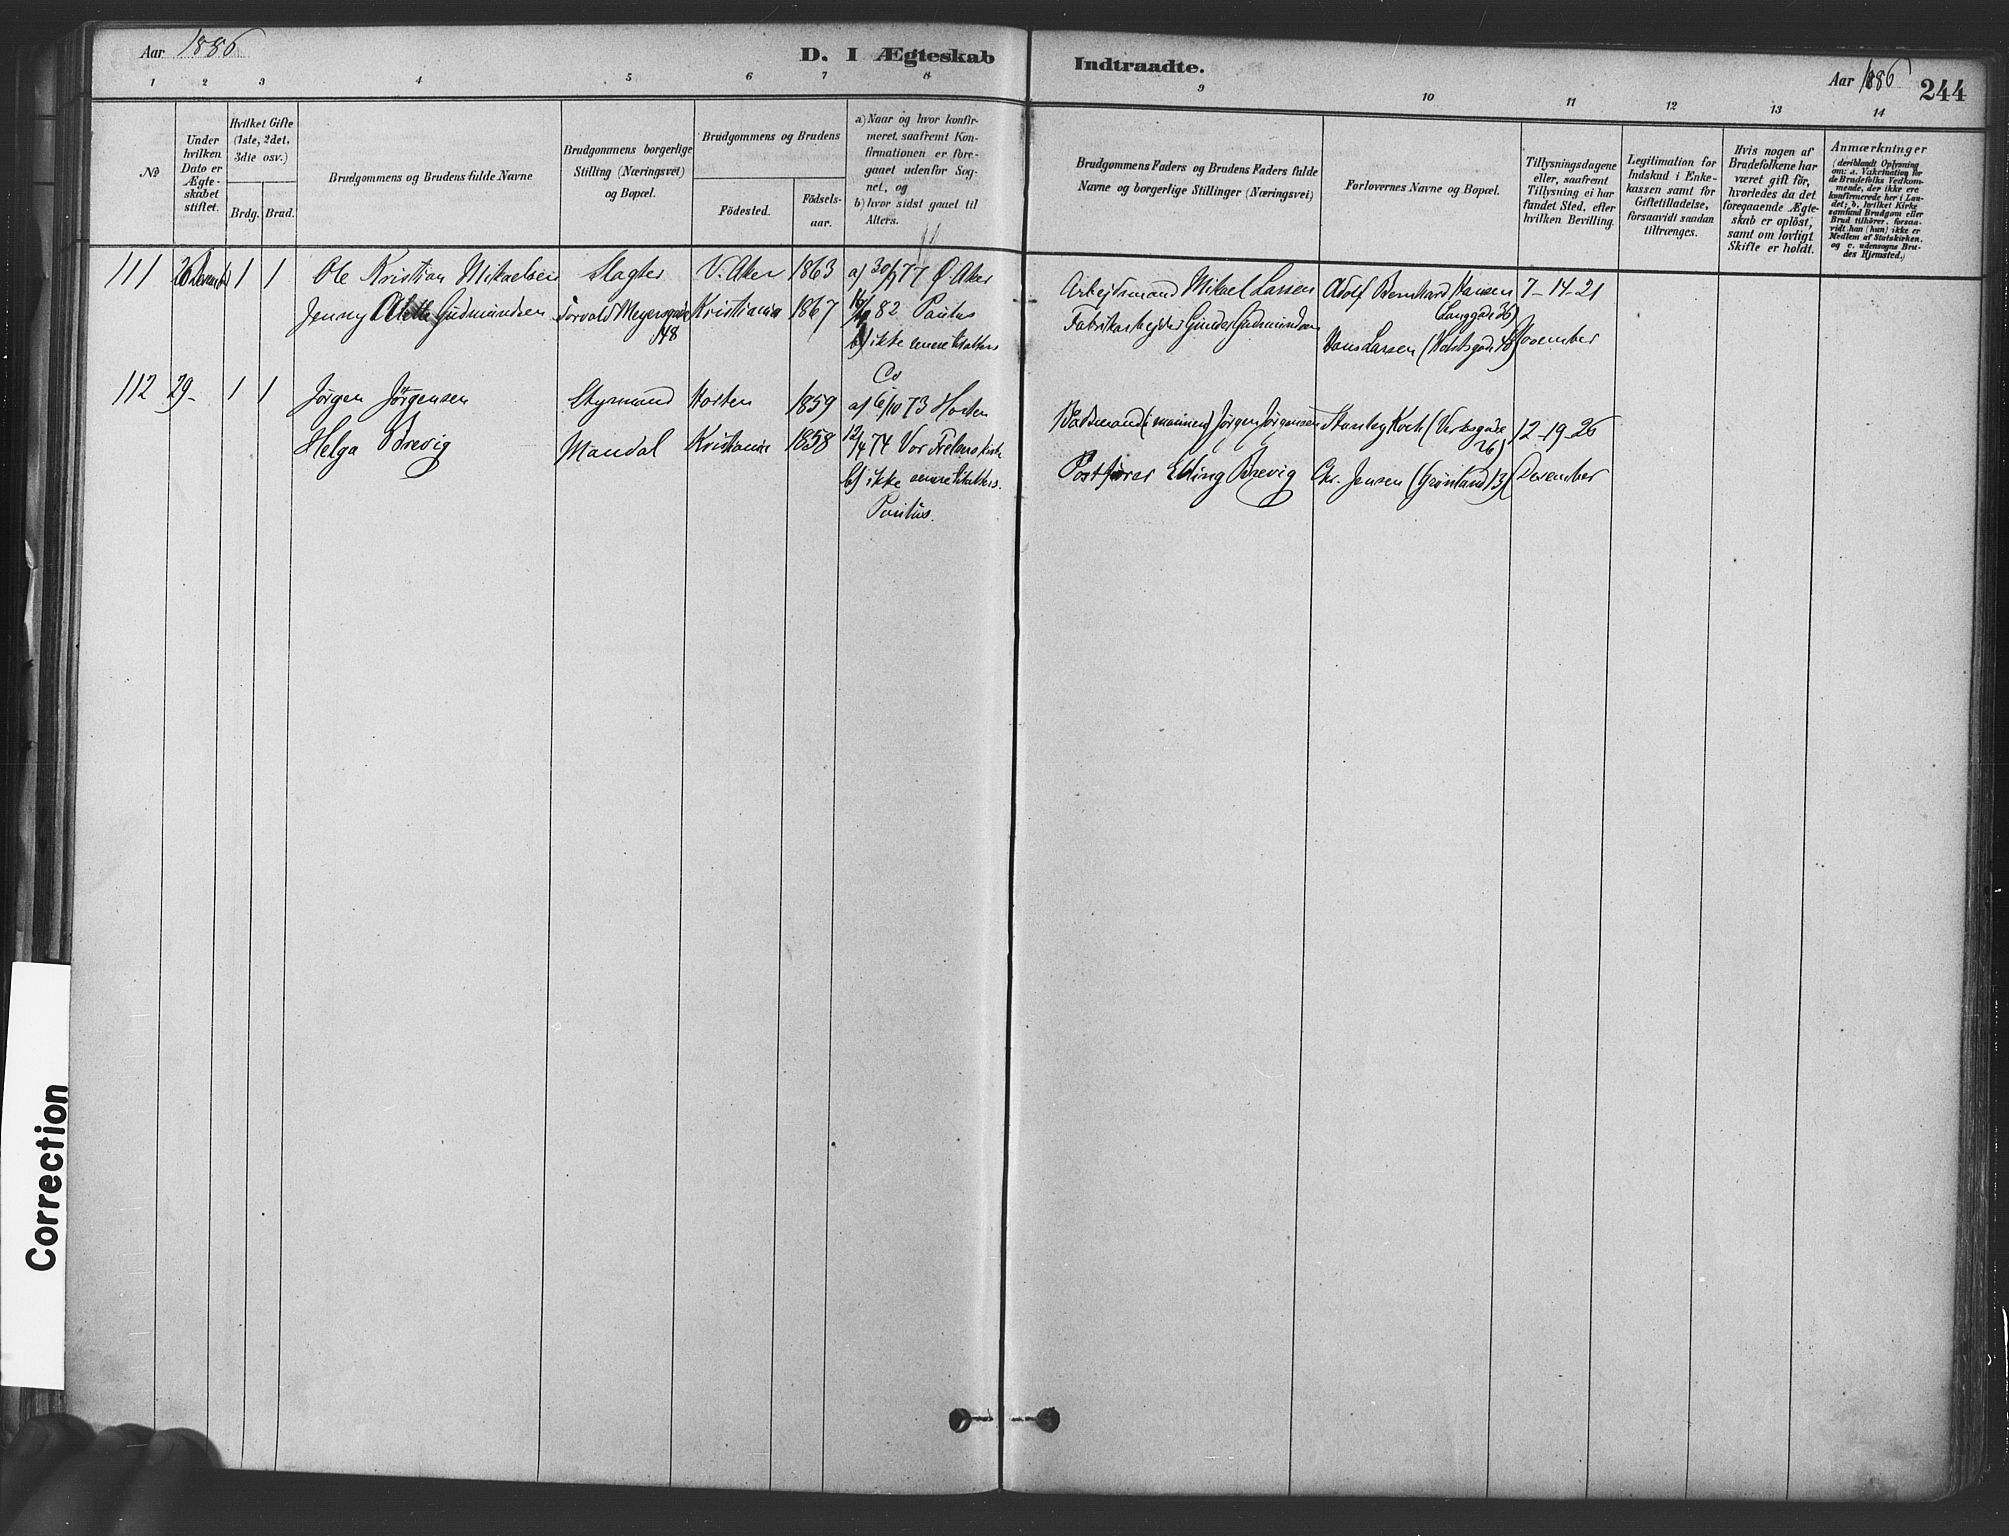 Aar 1886
D. I Ægteskab
Indtraadte.
Aar 1886
244
1 2 3 4 5 6 7 8 9 10 11 12 13 14
No
Under
hvilken
Dato er
Ægte-
skabet
stiftet.
Hvilket Gifte
(1ste, 2det,
3die osv.)
Brdg. Brud.
Brudgommens og Brudens fulde Navne
Brudgommens borgerlige
Stilling (Næringsvei)
og Bopæl.
Brudgommens og Brudens
Fødested.
Fødsels-
aar.
a) Naar og hvor konfir-
meret, saafremt Kon-
firmationen er fore-
gaaet udenfor Sog-
net, og
b) hvor sidst gaaet til
Alters.
Brudgommens Faders og Brudens Faders fulde
Navne og borgerlige Stillinger (Næringsvei)
Forlovernes Navne og Bopæl.
Tillysningsdagene
eller, saafremt
Tillysning ei har
fundet Sted, efter
hvilken Bevilling.
Legitimation for
Indskud i Enke-
kassen samt for
Giftetilladelse,
forsaavidt saadan
tiltrænges.
Hvis nogen af
Brudefolkene har
været gift før,
hvorledes da det
foregaaende Ægte-
skab er opløst,
samt om lovligt
Skifte er holdt.
Anmærkninger
(deriblandt Oplysning
om: a. Vakcination for
de Brudefolks Vedkom-
mende, der ikke ere
konfirmerede her i Lan-
det; b. hvilket Kirke-
samfund Brudgom eller
Brud tilhører, forsaa-
vidt han (hun) ikke er
Medlem af Statskirken,
og c. udensogns Bru-
des Hjemsted.)
111 26 1 1 Ole Kristian Mikaelsen Slagter V. Aker 1863 a) 30/9 77 Ø. Aker Arbejdsmand Mikael Larsen Adolf Bernhard Hansen 7-14-21
Langgade 36)
Jenny Alette Gudmundsen Torvald Meyersgade Kristiania 1867 82 Paulus Fabrikarbejder Gunder Gudmundsen
48 b) ikke senere til alters Hans Larsen November
112 29- 1 1 Jørgen Jørgensen Styrmand Horten 1859 a) 6/10 73 Horten Baadsmand (i marinen) Jørgen Jørgensen Stanley Koch 12-19-26
26)
Helga Brevig Mandal Kristiania 1858 12/4 74 Vor Frelsers kirke
b) ikke senere til alters. Postfører Elling Brevig Chr. Jensen (Grønland 13) Desember
Paulus.
Correction